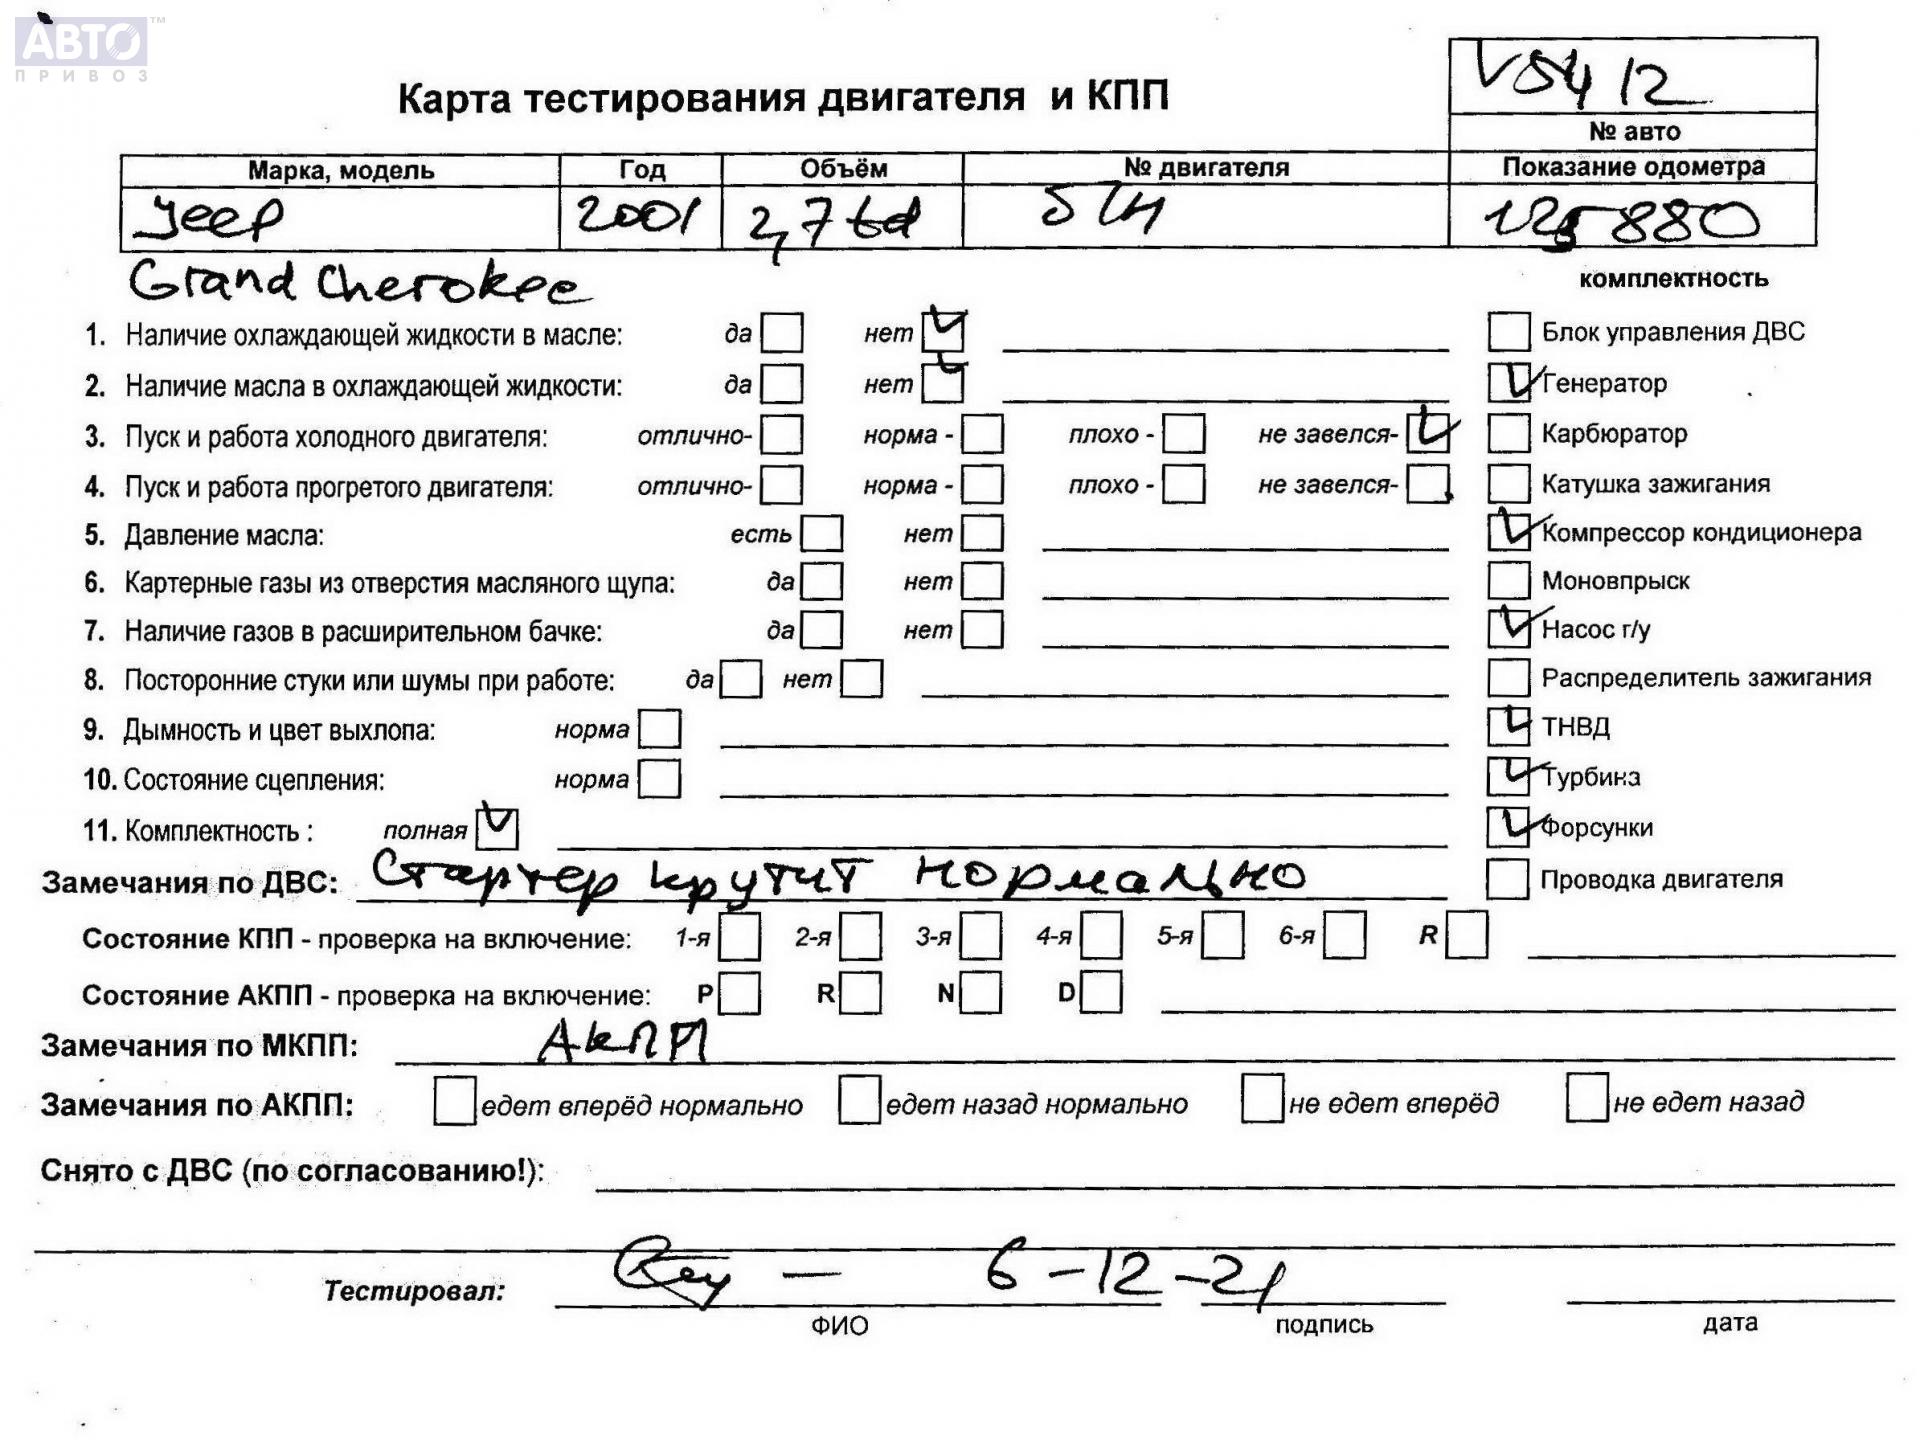 АВТО™
ПРИВОЗ
Карта тестирования двигателя и КПП
VS412
№ авто
Марка, модель Год Объём № двигателя Показание одометра
Jeep 2001 2,7td 125880
Grand Cherokee
комплектность
1. Наличие охлаждающей жидкости в масле: да нет Блок управления ДВС
2. Наличие масла в охлаждающей жидкости: да нет Генератор
3. Пуск и работа холодного двигателя: отлично- норма - плохо - не завелся- Карбюратор
4. Пуск и работа прогретого двигателя: отлично- норма - плохо - не завелся- Катушка зажигания
5. Давление масла: есть нет Компрессор кондиционера
6. Картерные газы из отверстия масляного щупа: да нет Моновпрыск
7. Наличие газов в расширительном бачке: да нет Насос г/у
8. Посторонние стуки или шумы при работе: да нет Распределитель зажигания
9. Дымность и цвет выхлопа: норма ТНВД
10. Состояние сцепления: норма Турбина
11. Комплектность : полная Форсунки
Замечания по ДВС: Стартер крутит нормально Проводка двигателя
Состояние КПП - проверка на включение: 1-я 2-я 3-я 4-я 5-я 6-я R
Состояние АКПП - проверка на включение: P R N D
Замечания по МКПП: АКПП
Замечания по АКПП: едет вперёд нормально едет назад нормально не едет вперёд не едет назад
Снято с ДВС (по согласованию!):
Тестировал: 6-12-21
ФИО подпись дата